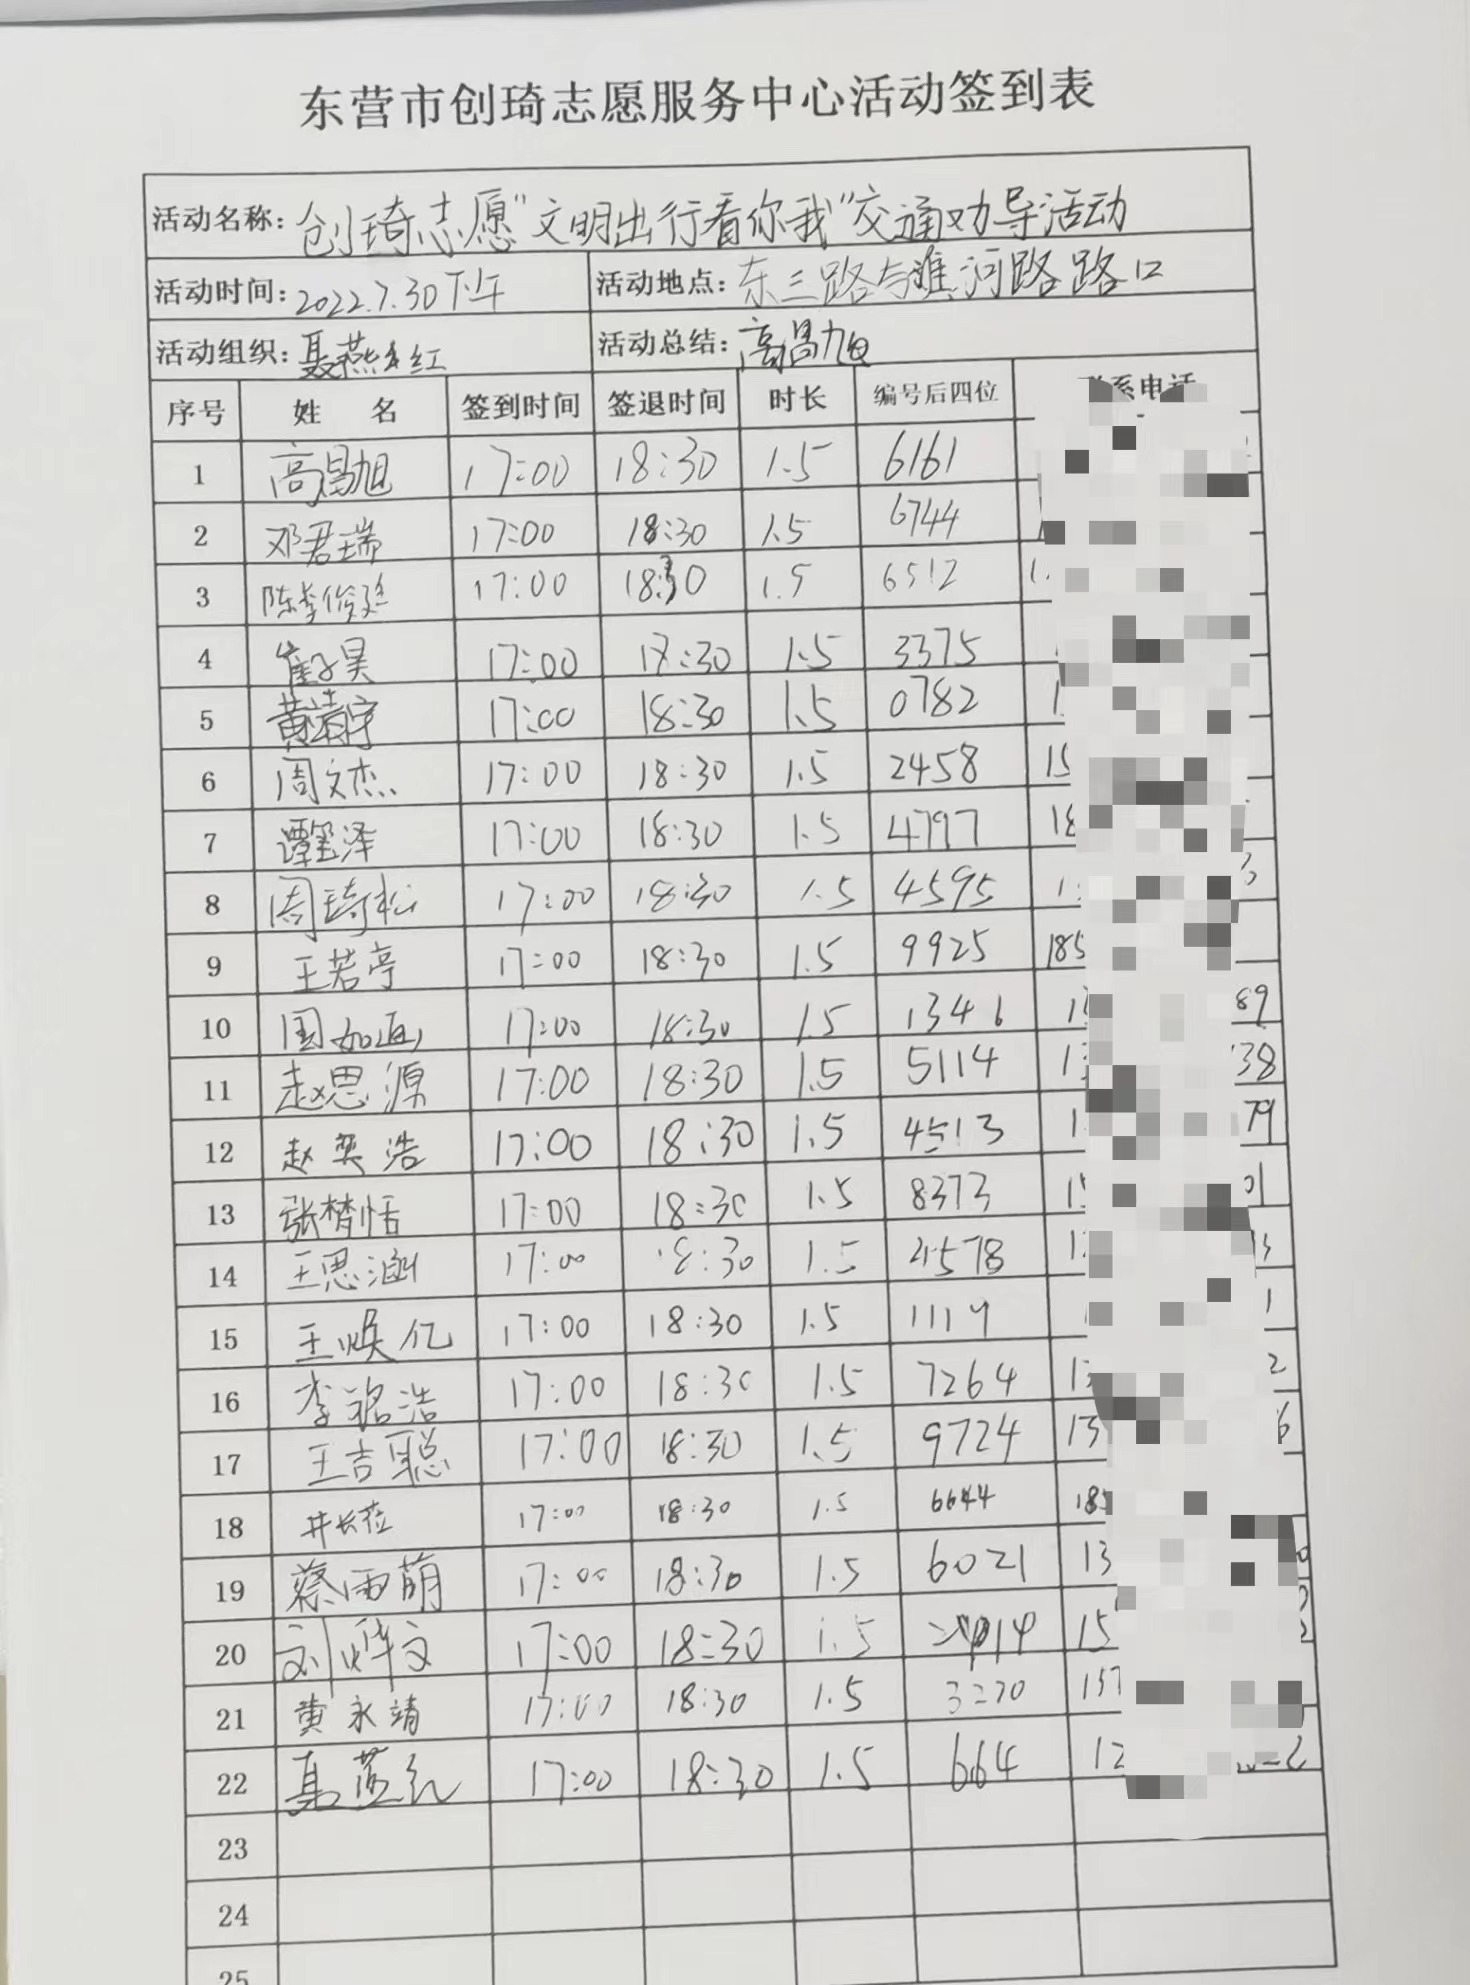 东营市创琦志愿服务中心活动签到表
活动名称: 创琦志愿"文明出行看你我"交通劝导活动
活动时间: 2022.7.30下午 活动地点: 东三路与淮河路路口
活动组织: 聂燕红 活动总结: 高昌旭
序号 姓 名 签到时间 签退时间 时长 编号后四位 系电话
1 高昌旭 17:00 18:30 1.5 6161
2 邓君瑞 17:00 18:30 1.5 6744
3 陈李俊廷 17:00 18:30 1.5 6512
4 崔子昊 17:00 18:30 1.5 3375
5 黄靖宇 17:00 18:30 1.5 0782
6 周文杰 17:00 18:30 1.5 2458 15
7 谭玺泽 17:00 18:30 1.5 4797 18
8 周琦松 17:00 18:30 1.5 4595
9 王若亭 17:00 18:30 1.5 9925 185
10 国如画 17:00 18:30 1.5 1346 89
11 赵思源 17:00 18:30 1.5 5114 38
12 赵奕浩 17:00 18:30 1.5 4513 79
13 张梦恬 17:00 18:30 1.5 8373 01
14 王思涵 17:00 18:30 1.5 4578
15 王焕亿 17:00 18:30 1.5 1119 1
16 李铭浩 17:00 18:30 1.5 7264 2
17 王吉聪 17:00 18:30 1.5 9724 13 6
18 井长莅 17:00 18:30 1.5 6644 185
19 蔡雨萌 17:00 18:30 1.5 6021 13
20 刘烨文 17:00 18:30 1.5 15
21 黄永靖 17:00 18:30 1.5 3270 137
22 聂燕红 17:00 18:30 1.5 664
23
24
25